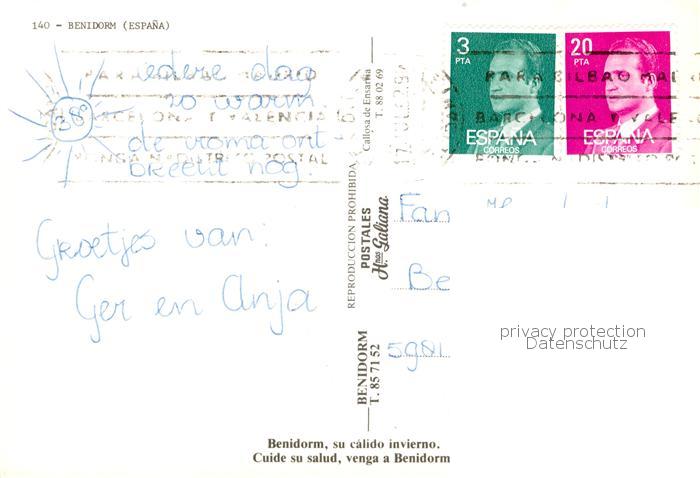 140 - BENIDORM (ESPAÑA)
iedere dag
zo warm.
38°
de roma ont-
breekt nog.
Groetjes van:
Ger en Anja
REPRODUCCION PROHIBIDA
Callosa de Ensarriá
T. 88 02 69
POSTALES
Hnos Galiana
BENIDORM
T. 85 71 52
3
PTA
ESPAÑA
CORREOS
20
PTA
ESPAÑA
CORREOS
PARA BILBAO MAD
BARCELONA Y VALENCIA
PONGA N DISTRITO POSTAL
Fam
Be
privacy protection
Datenschutz
Benidorm, su cálido invierno.
Cuide su salud, venga a Benidorm